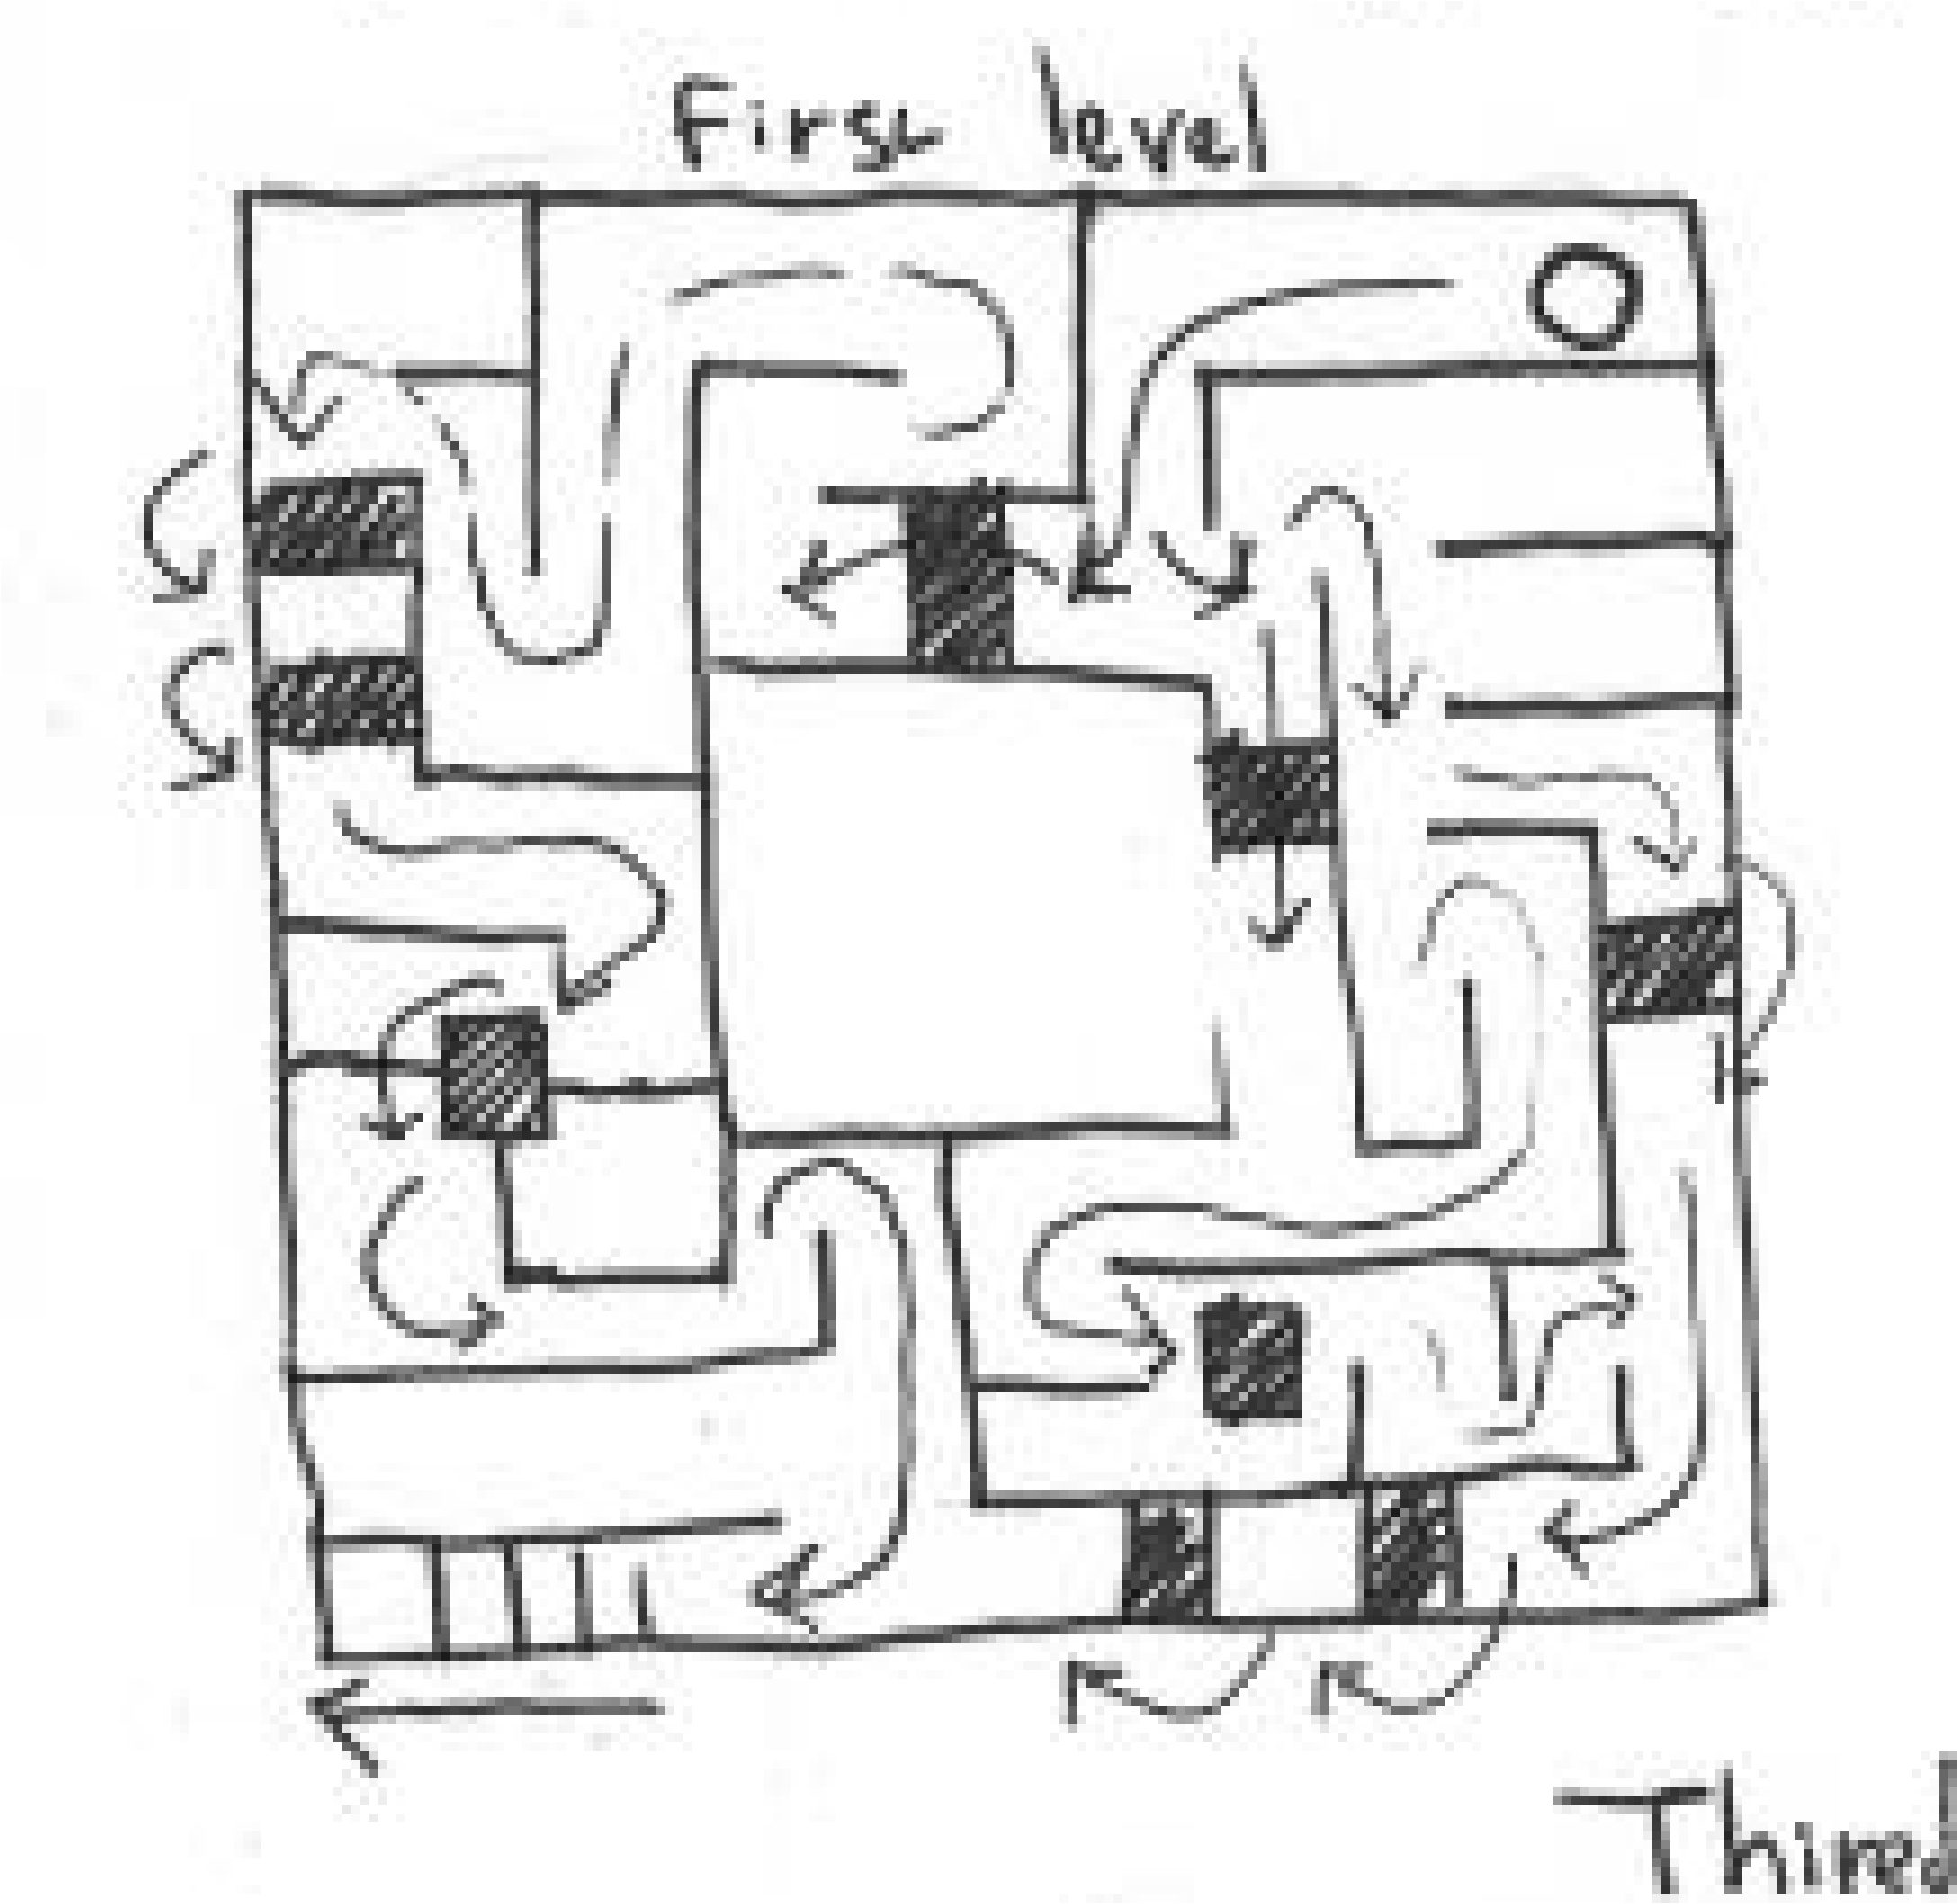 First level
Thired